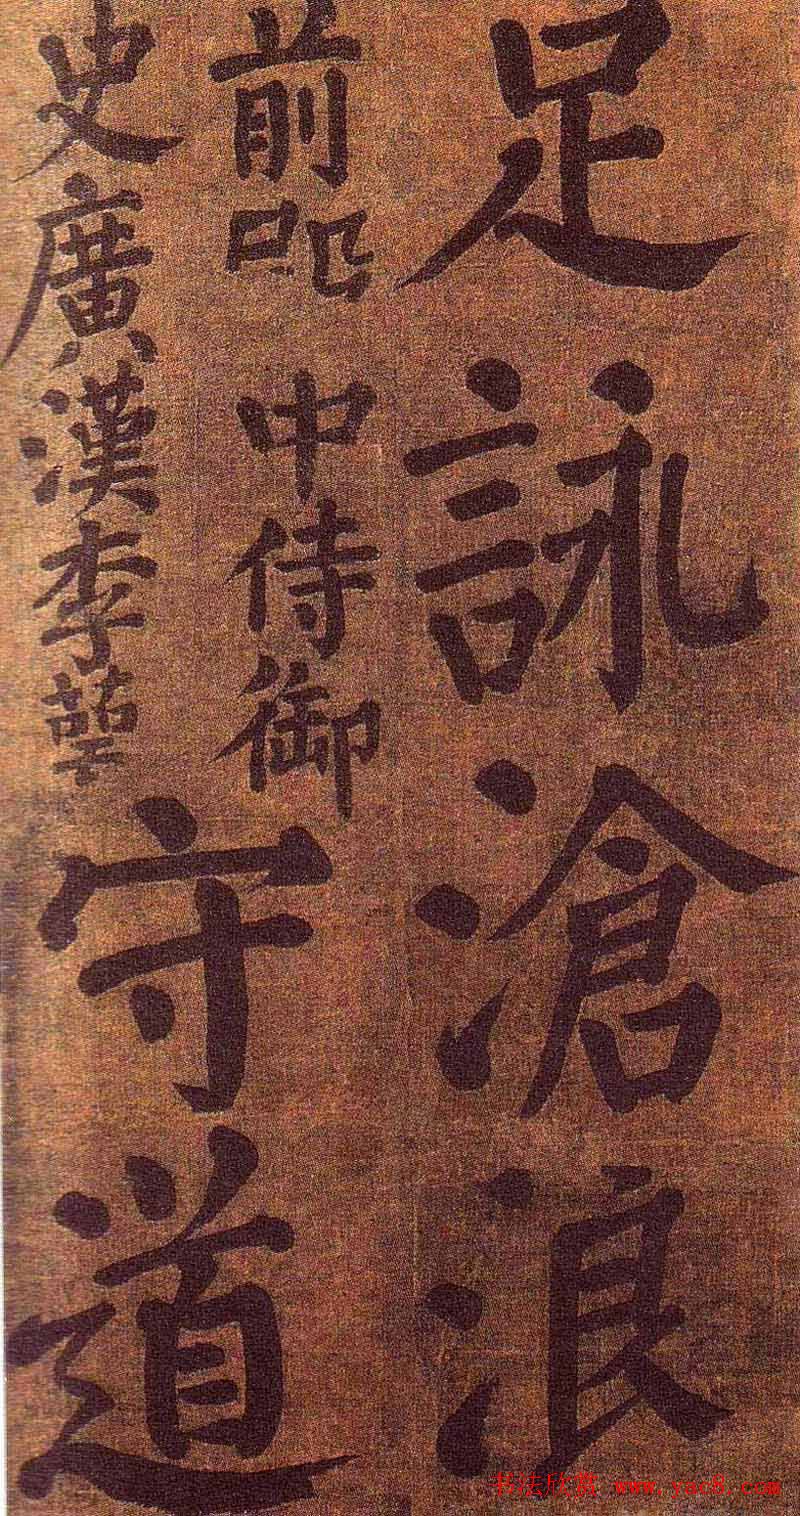 足詠滄浪
前 中侍御
史廣漢李
守道
书法欣赏 www.yac8.com